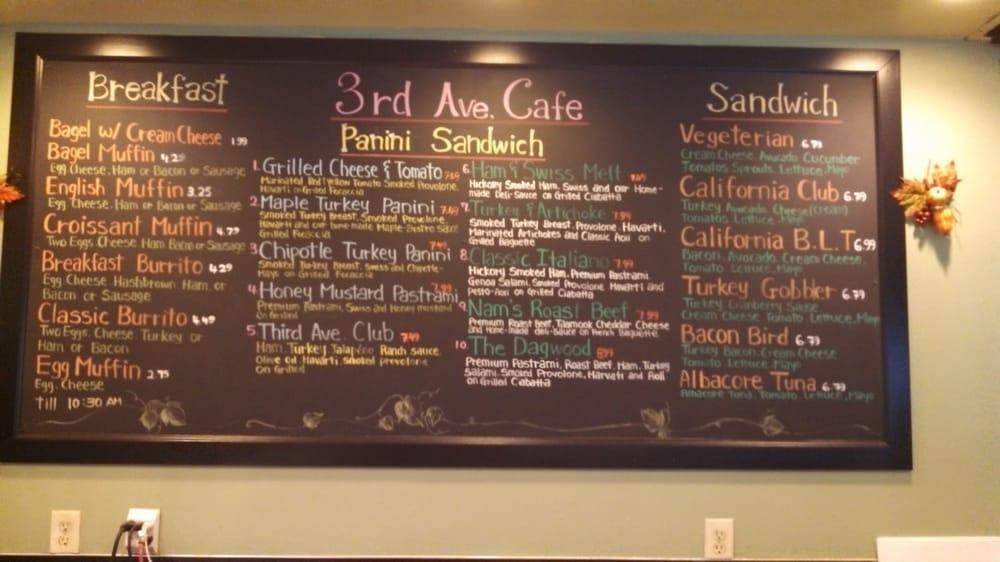 Breakfast
Bagel w/ Cream Cheese 1.99
Bagel Muffin 4.29
Egg Cheese, Ham or Bacon or Sausage
English Muffin 3.25
Egg Cheese, Ham or Bacon or Sausage
Croissant Muffin 4.79
Two Eggs, Cheese Ham Bacon or Sausage
Breakfast Burrito 4.29
Egg Cheese Hashbrown Ham, or
Bacon or Sausage
Classic Burrito 4.49
Two Eggs, Cheese, Turkey or
Ham or Bacon
Egg Muffin 2.75
Egg, Cheese
Till 10:30 AM
3rd Ave. Cafe
Panini Sandwich
1. Grilled Cheese & Tomato 7.49
Marinated Red Yellow Tomato Smoked Provolone,
Havarti on Grilled Focaccia
2. Maple Turkey Panini 7.49
Smoked Turkey Breast, Smoked Provolone,
Havarti and our home-made Maple-Bistro Sauce
Grilled Focaccia
3. Chipotle Turkey Panini 7.49
Smoked Turkey Breast, Swiss and Chipotle-
Mayo on Grilled Focaccia
4. Honey Mustard Pastrami 7.99
Premium Pastrami, Swiss and Honey mustard
on Grilled
5. Third Ave. Club 7.49
Ham, Turkey, Jalapeno Ranch sauce,
Olive Oil, Havarti, Smoked provolone
on Grilled
6. Ham & Swiss Melt
Hickory Smoked Ham, Swiss and our Home-
made Deli-Sauce on Grilled Ciabatta
7. Turkey & Artichoke 7.99
Smoked Turkey Breast, Provolone, Havarti,
Marinated Artichokes and Classic Aioli on
Grilled Baguette
8. Classic Italiano 7.99
Hickory Smoked Ham, Premium Pastrami,
Genoa Salami, Smoked Provolone, Havarti and
Pesto-Aioli on Grilled Ciabatta
9. Nam's Roast Beef 7.99
Premium Roast Beef, Tilamook Cheddar Cheese
and Home-made deli-Sauce on French Baguette
10. The Dagwood 8.99
Premium Pastrami, Roast Beef, Ham, Turkey
Salami, Smoked Provolone, Harvati and Aioli
on Grilled Ciabatta
Sandwich
Vegeterian 6.79
Cream Cheese, Avocado Cucumber
Tomatos, Sprouts, Lettuce, Mayo
California Club 6.79
Turkey, Avocado, Cheese (cream)
Tomatos, Lettuce, Mayo
California B.L.T 6.99
Bacon, Avocado, Cream Cheese,
Tomato, Lettuce, Mayo
Turkey Gobbler 6.79
Turkey, Cranberry Sauce
Cream Cheese, Tomato, Lettuce, Mayo
Bacon Bird 6.79
Turkey, Bacon, Cream Cheese
Tomato, Lettuce, Mayo
Albacore Tuna 6.79
Albacore Tuna, Tomato, Lettuce, Mayo